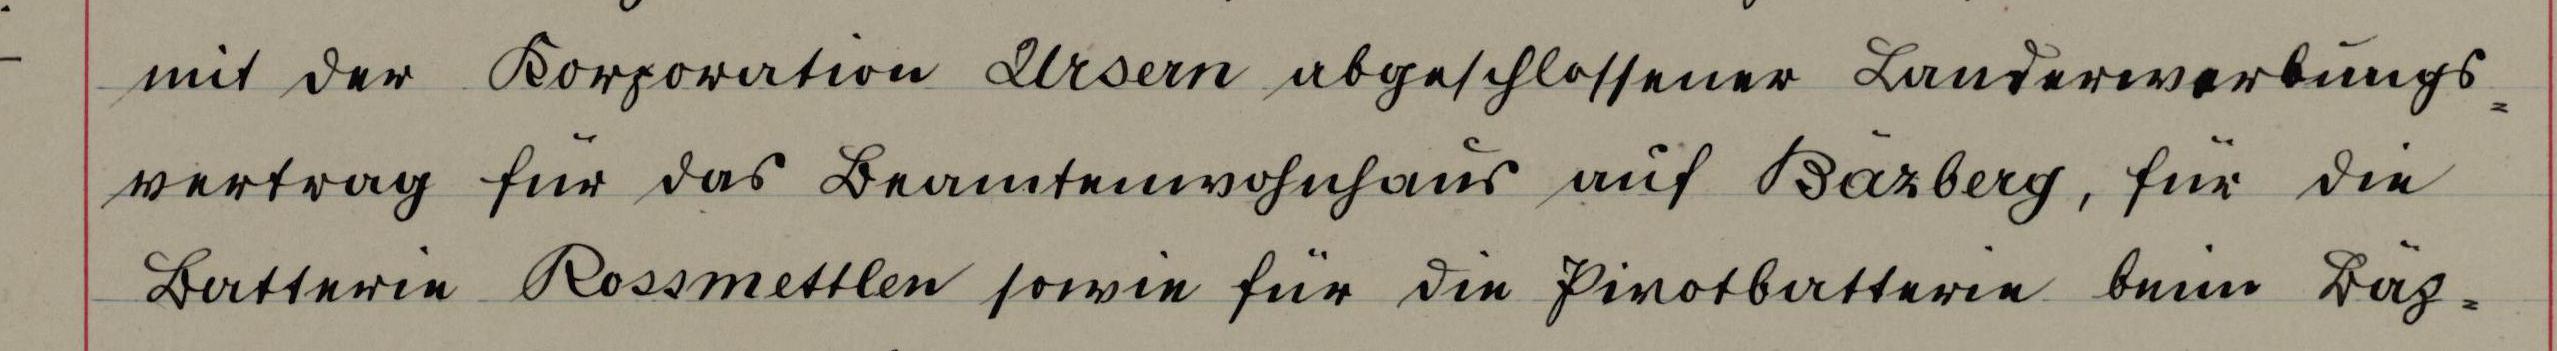 mit der Korporation Ursern abgeschlossener Landerwerbungs=
vertrag für das Beamtenwohnhaus auf Bäzberg, für die
Batterie Rossmettlen sowie für die Pivotbatterie beim Bäz=